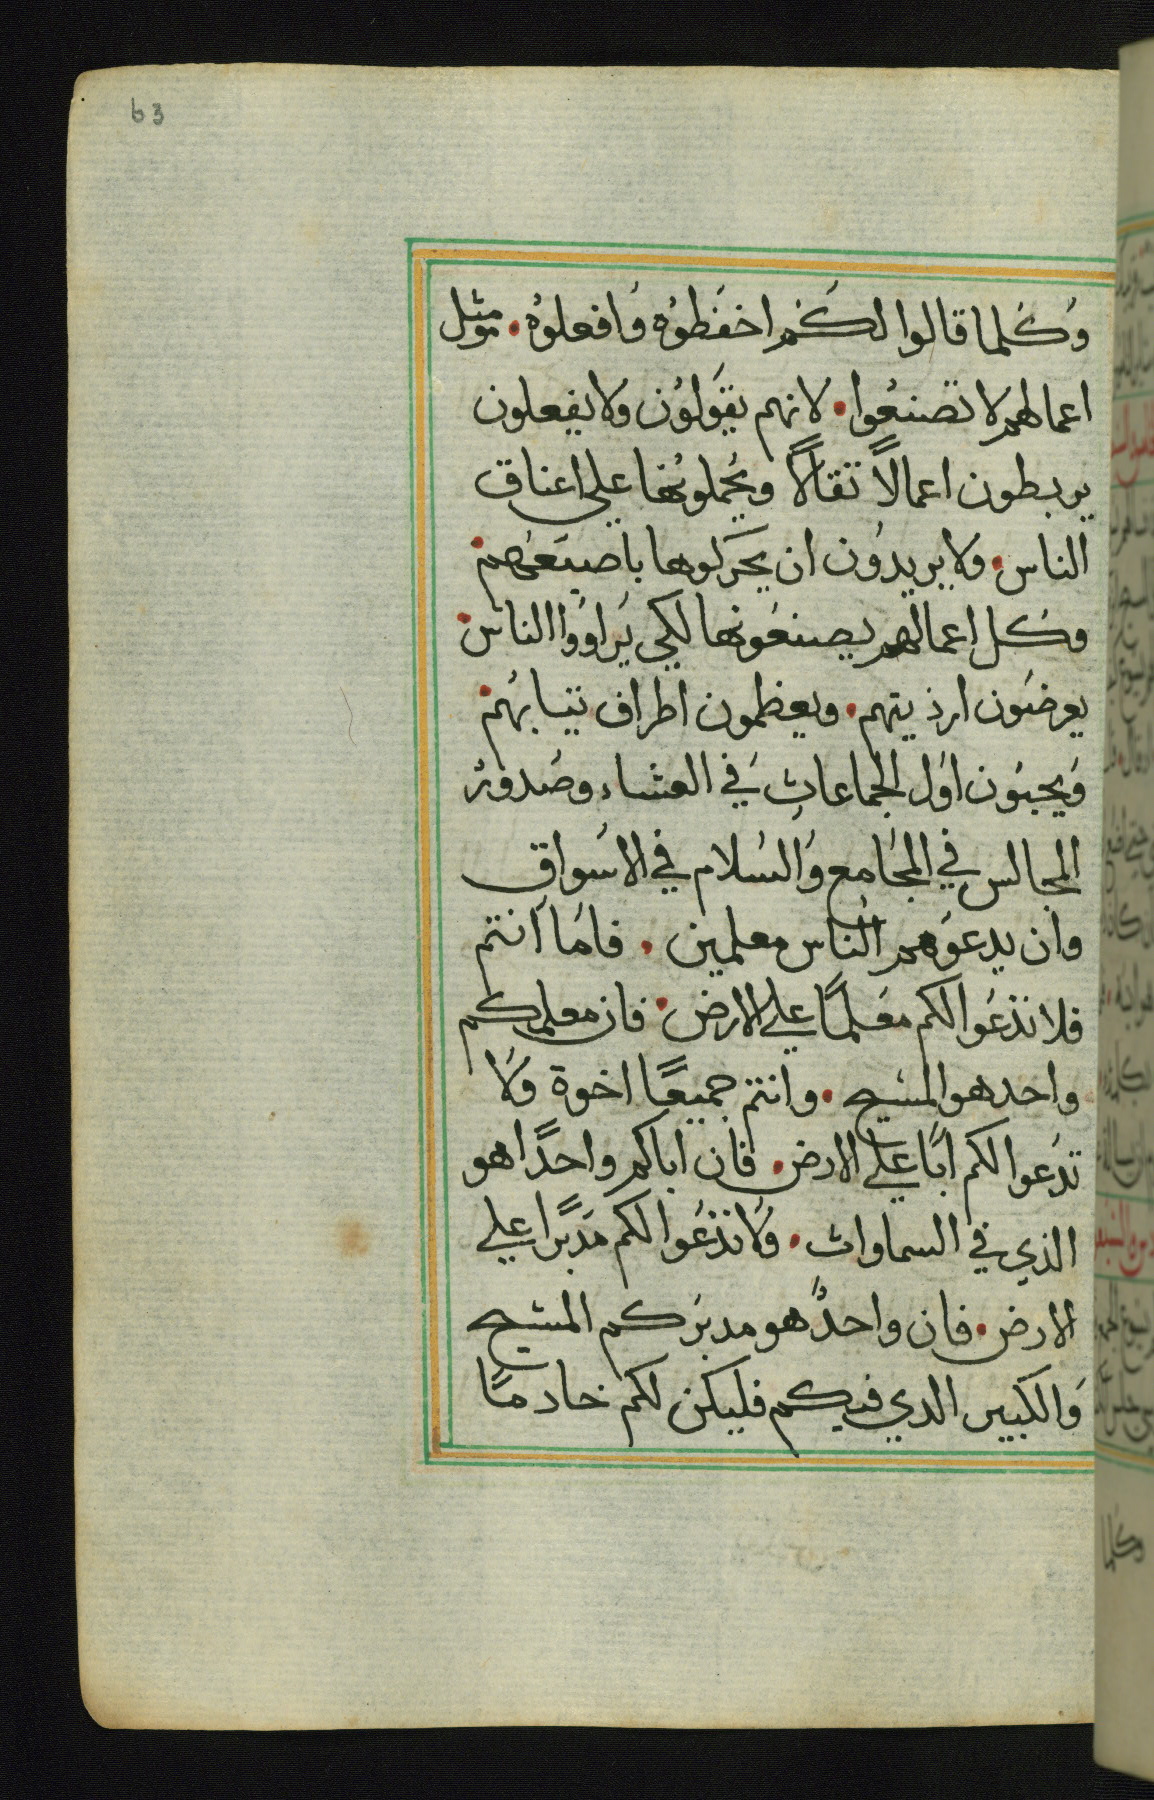 63
وكلما قالوا لكم احفظوه وافعلوه. مثل
اعمالهم لا تصنعوا. لانهم يقولون ولا يفعلون
يربطون اعمالاً ثقالاً ويحملونها علي اعناق
الناس. ولا يريدون ان يحركوها باصبعهم.
وكل اعمالهم يصنعونها لكي يراووا الناس.
يعرضون ارذيتهم. ويعظمون اطراف ثيابهم.
ويحبون اول الجماعات في العشاء وصدور
المجالس في المجامع والسلام في الاسواق
وان يدعوهم الناس معلمين. فاما انتم
فلا تدعوا لكم معلمًا علي الارض. فان معلمكم
واحد هو المسيح. وانتم جميعًا اخوة ولا
تدعوا لكم ابًا علي الارض. فان اباكم واحدًا هو
الذي في السماوات. ولا تدعوا لكم مدبرًا علي
الارض. فان واحدٌ هو مدبركم المسيح
والكبير الدي فيكم فليكن لكم خادمًا
وكلما